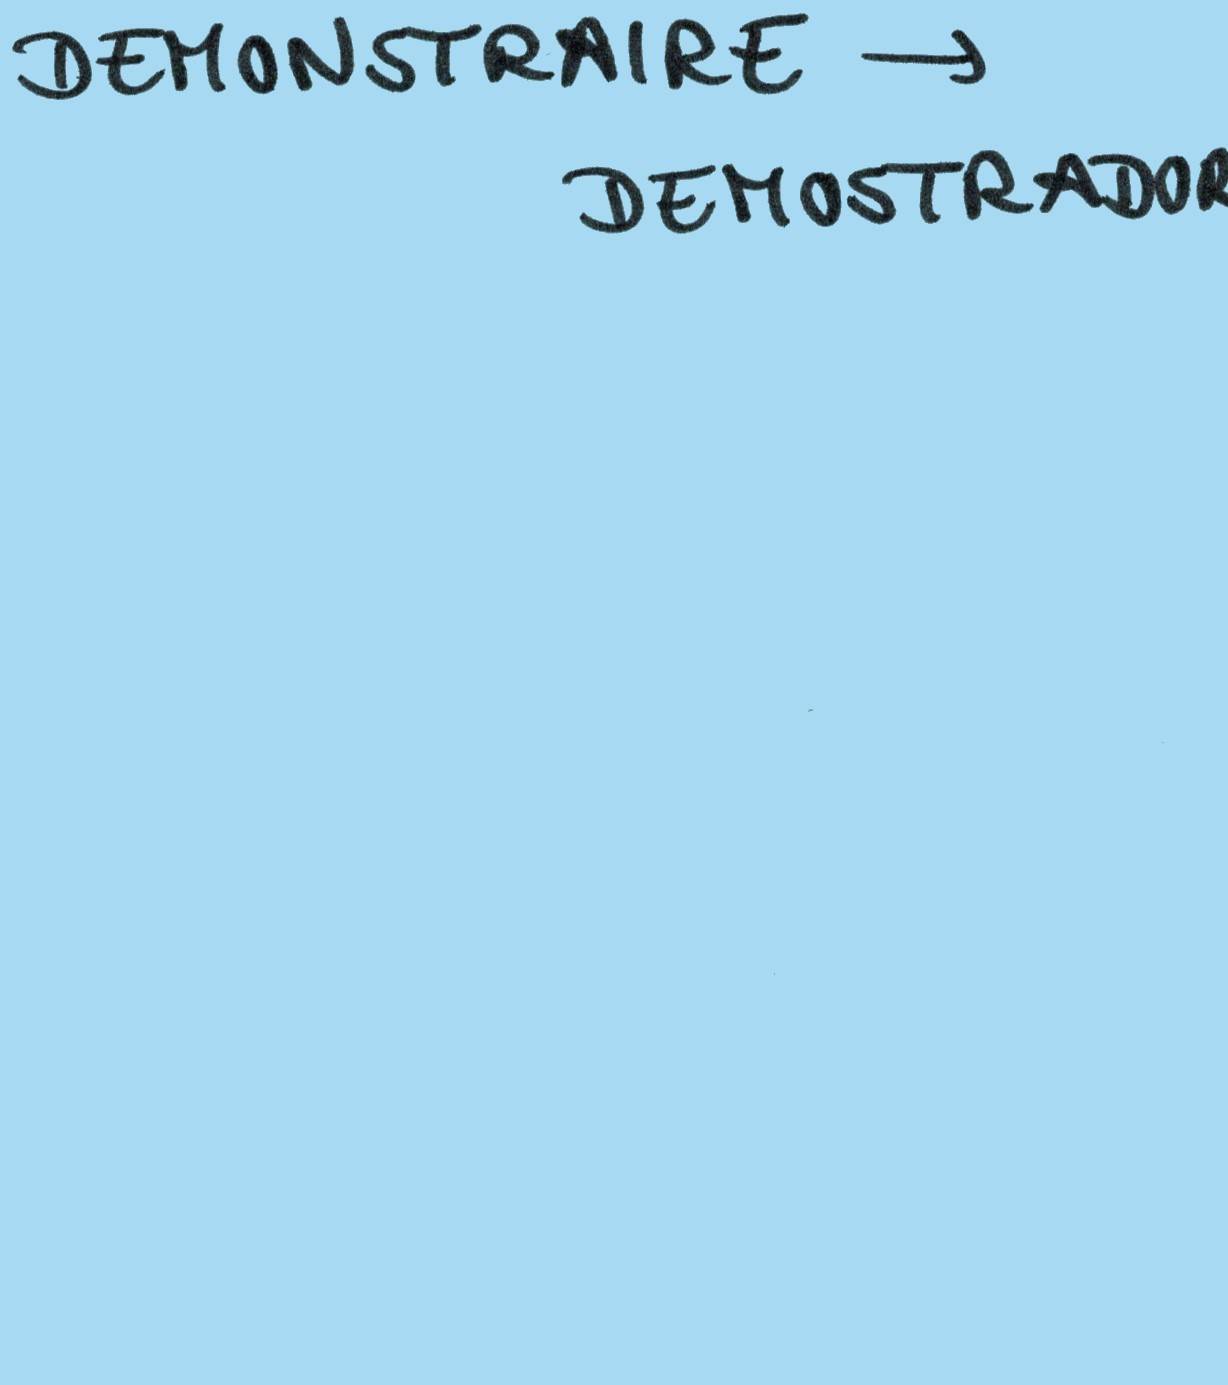 DEMONSTRAIRE →
DEMOSTRADOR